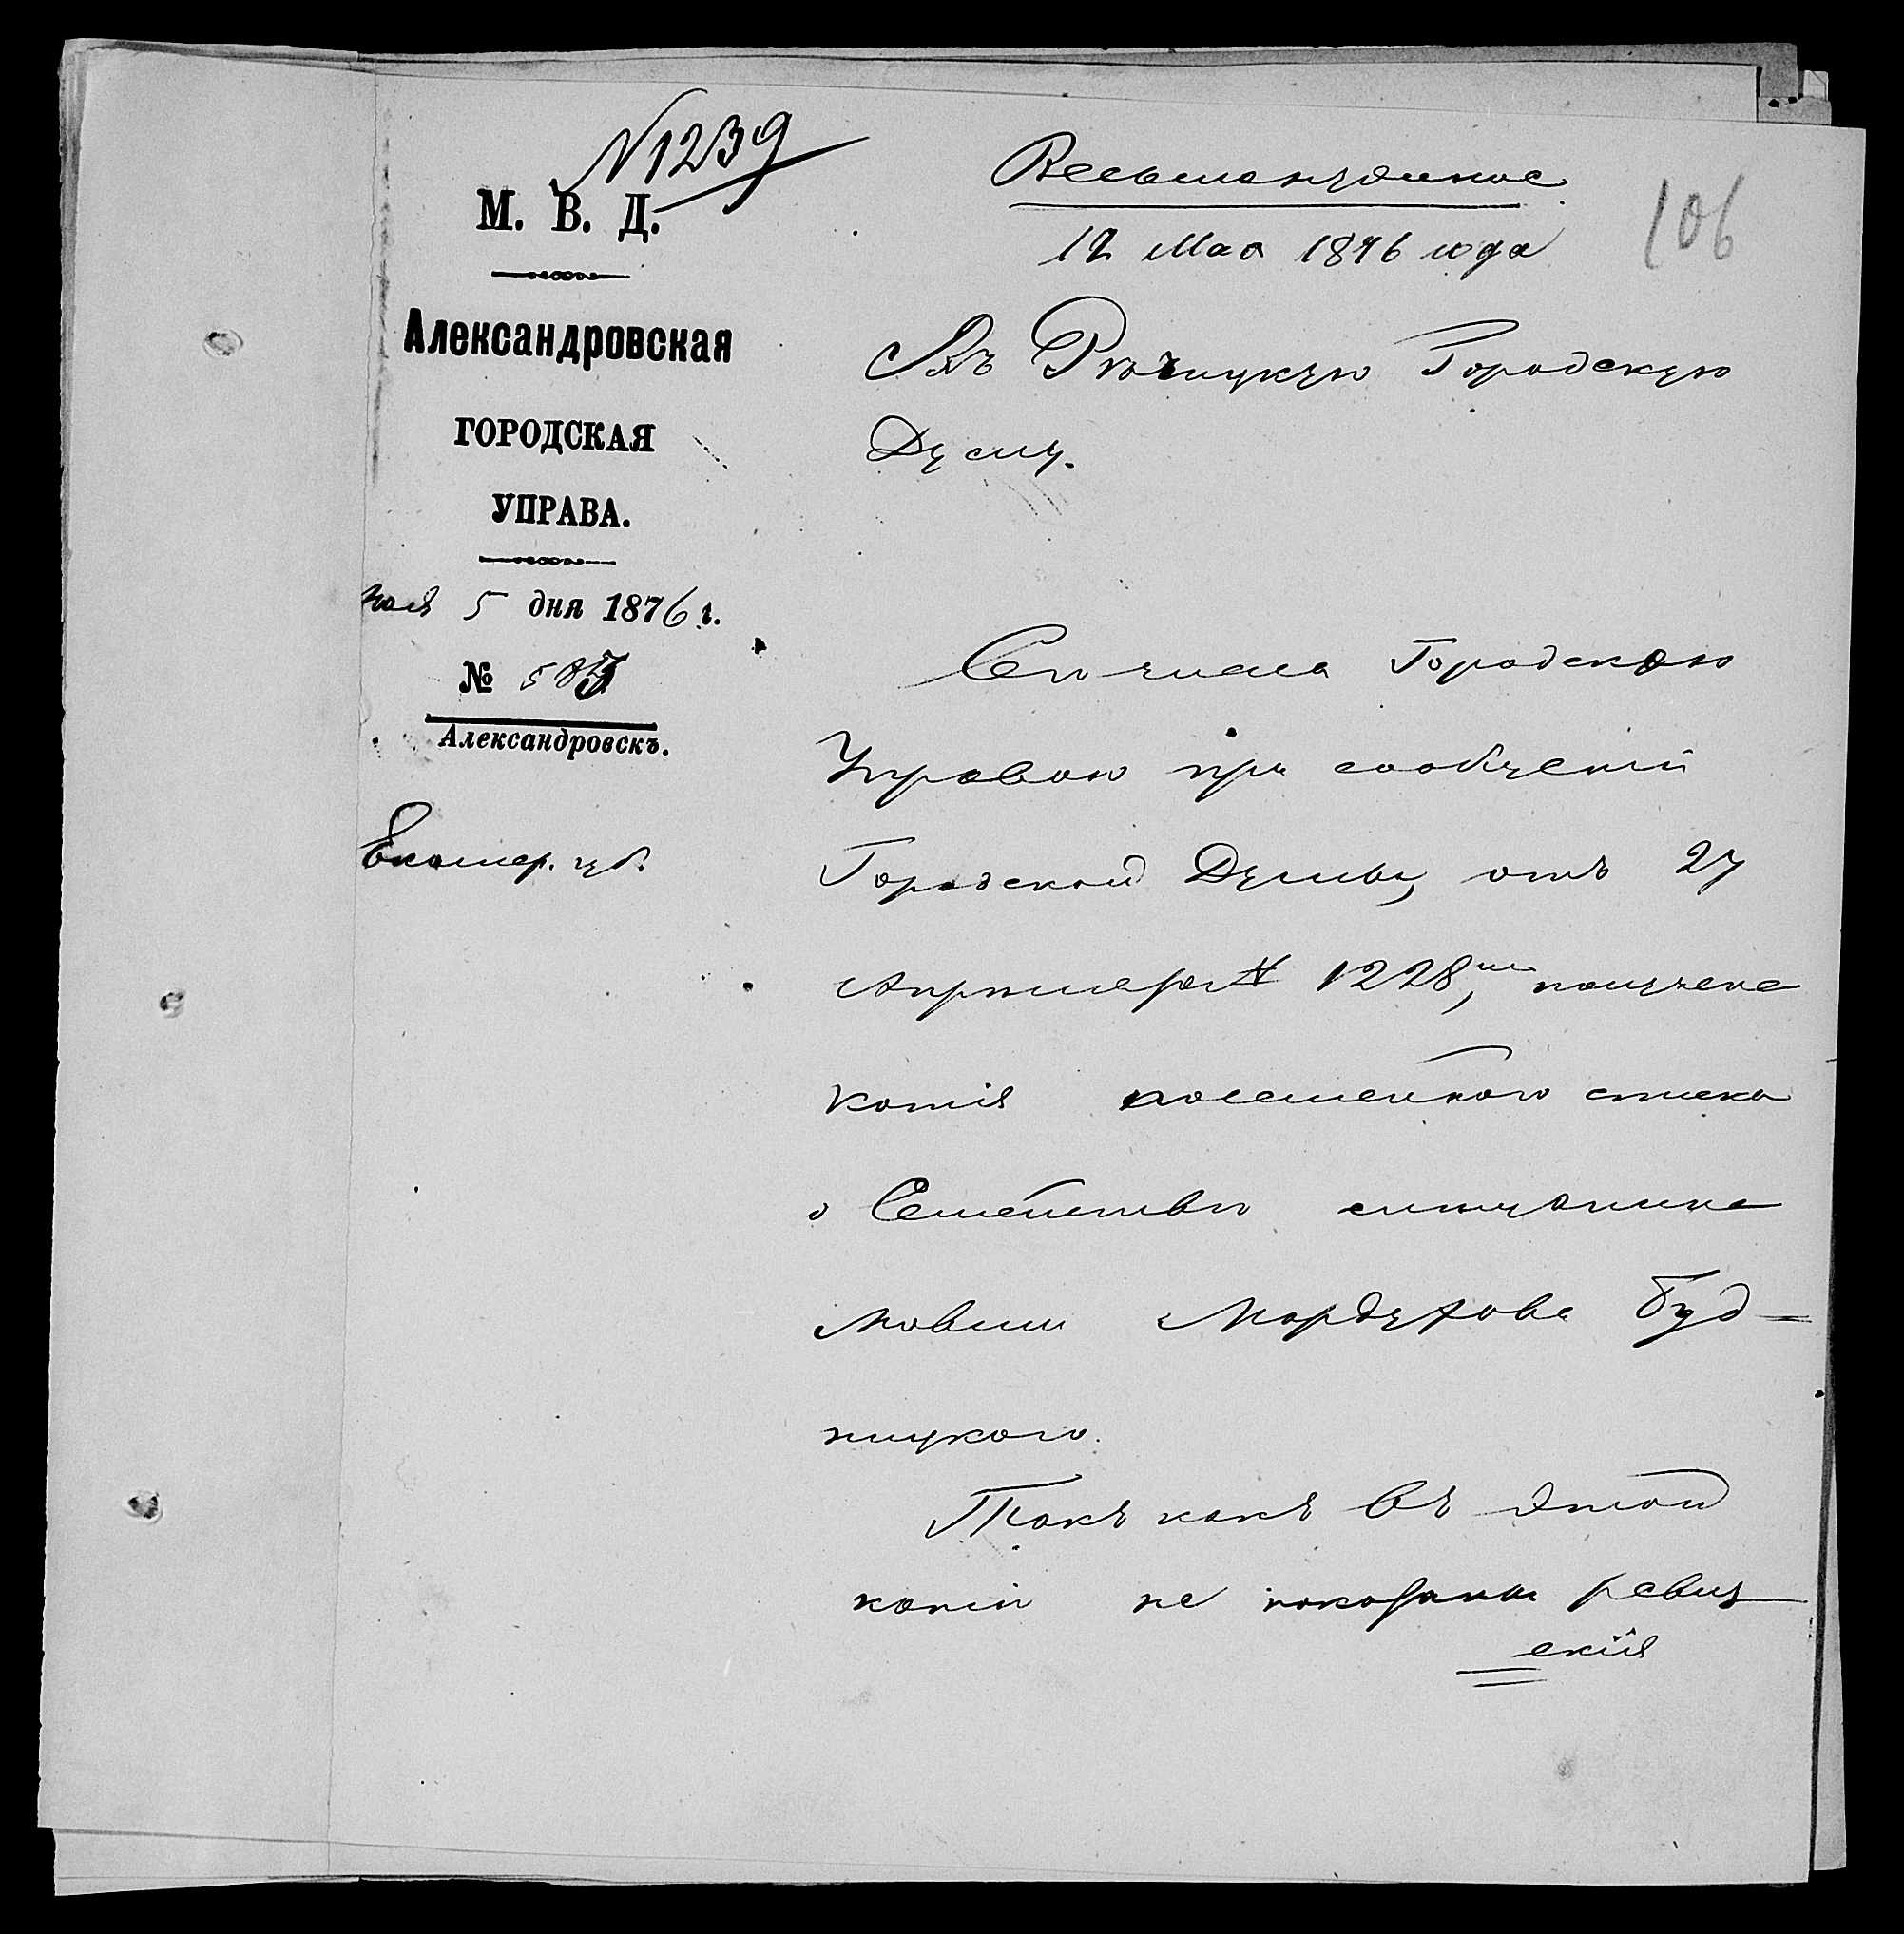 N 1239
М. В. Д.
Александровская
ГОРОДСКАЯ
УПРАВА.
мая 5 дня 1876 г.
№
Александровскъ.
Екатер. губ.
Весьманужное
12 Мая 1876 года
106
Въ Рѣчицкую Городскую
Думу.
Городскою
Управою при сообщеніи
Городской Думы, отъ 27
Апрѣля № 1228, получена
копія посемейного списка
о Семействѣ
Мовши Мордухова Буд-
ницкого.
Такъ какъ въ этой
копіи не показаны ревиз
скія